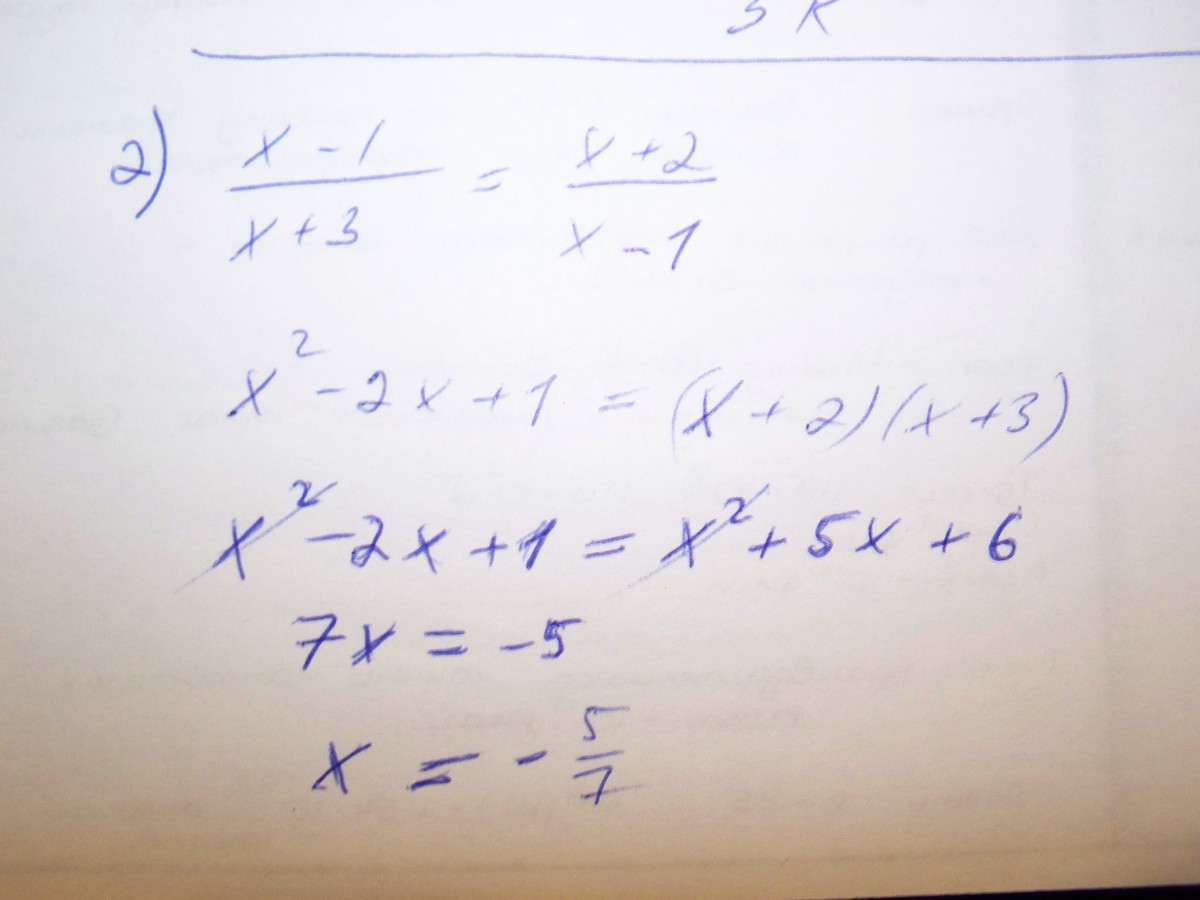 2) (x - 1)/(x + 3) = (x + 2)/(x - 1)
x² - 2x + 1 = (x + 2)(x + 3)
x² - 2x + 1 = x² + 5x + 6
7x = -5
x = - 5/7